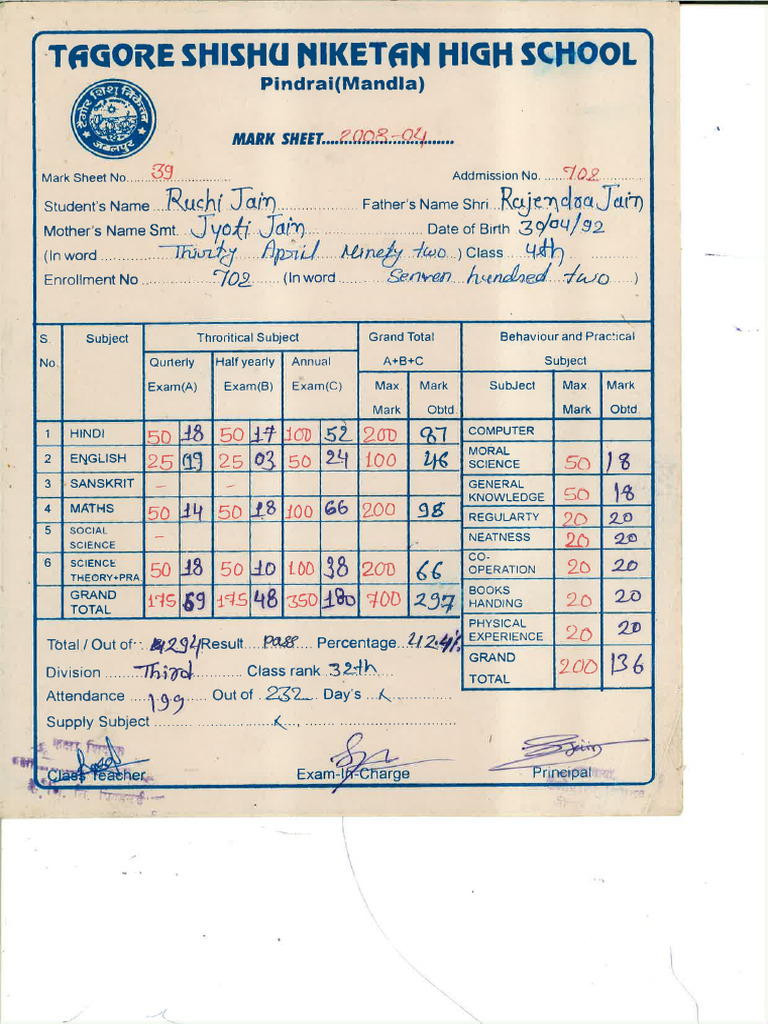 TAGORE SHISHU NIKETAN HIGH SCHOOL
Pindrai(Mandla)
टैगोर शिशु निकेतन
जबलपुर
MARK SHEET....2003-04....
Mark Sheet No. 39 Addmission No. 702
Student's Name Ruchi Jain Father's Name Shri Rajendra Jain
Mother's Name Smt. Jyoti Jain Date of Birth 30/04/92
(In word Thirty April Ninety two ) Class 4th
Enrollment No 702 (In word Senven hundred two )
S. No. Subject Throritical Subject Grand Total A+B+C Behaviour and Practical Subject
Qurterly Exam(A) Half yearly Exam(B) Annual Exam(C) Max. Mark Mark Obtd. SubJect Max. Mark Mark Obtd.
1 HINDI 50 18 50 17 100 52 200 87 COMPUTER
2 ENGLISH 25 19 25 03 50 24 100 46 MORAL SCIENCE 50 18
3 SANSKRIT - - GENERAL KNOWLEDGE 50 18
4 MATHS 50 14 50 18 100 66 200 98 REGULARTY 20 20
5 SOCIAL SCIENCE - NEATNESS 20 20
6 SCIENCE THEORY+PRA. 50 18 50 10 100 38 200 66 CO-OPERATION 20 20
GRAND TOTAL 175 69 175 48 350 180 700 297 BOOKS HANDING 20 20
PHYSICAL EXPERIENCE 20 20
GRAND TOTAL 200 136
Total / Out of 294 Result pass Percentage 42.4%
Division Third Class rank 32th
Attendance 199 Out of 232 Day's x
Supply Subject x
Class Teacher Exam-In-Charge Principal